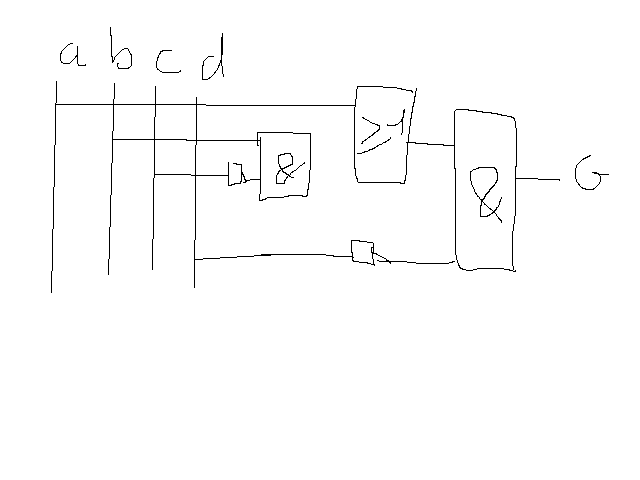 a b c d
≥1
&
&
G